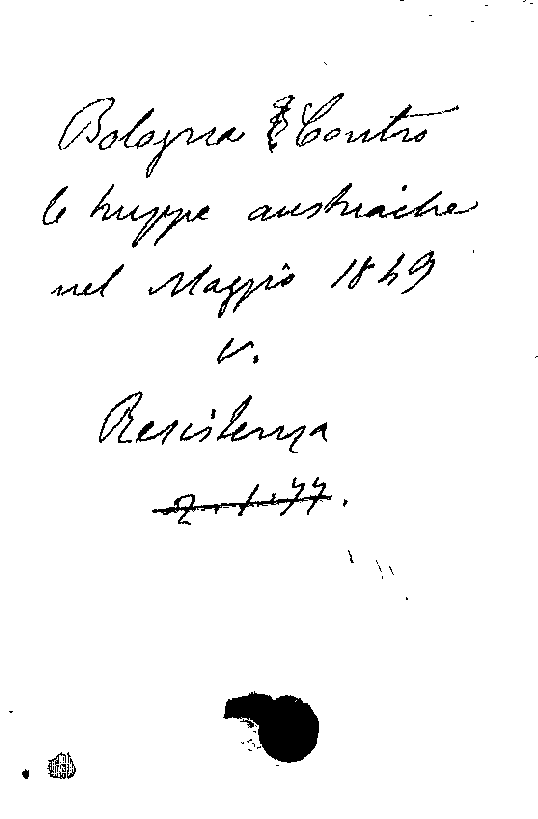 Bologna Contro
le truppe austriache
nel Maggio 1849
v.
Resistenza
2.1.77.